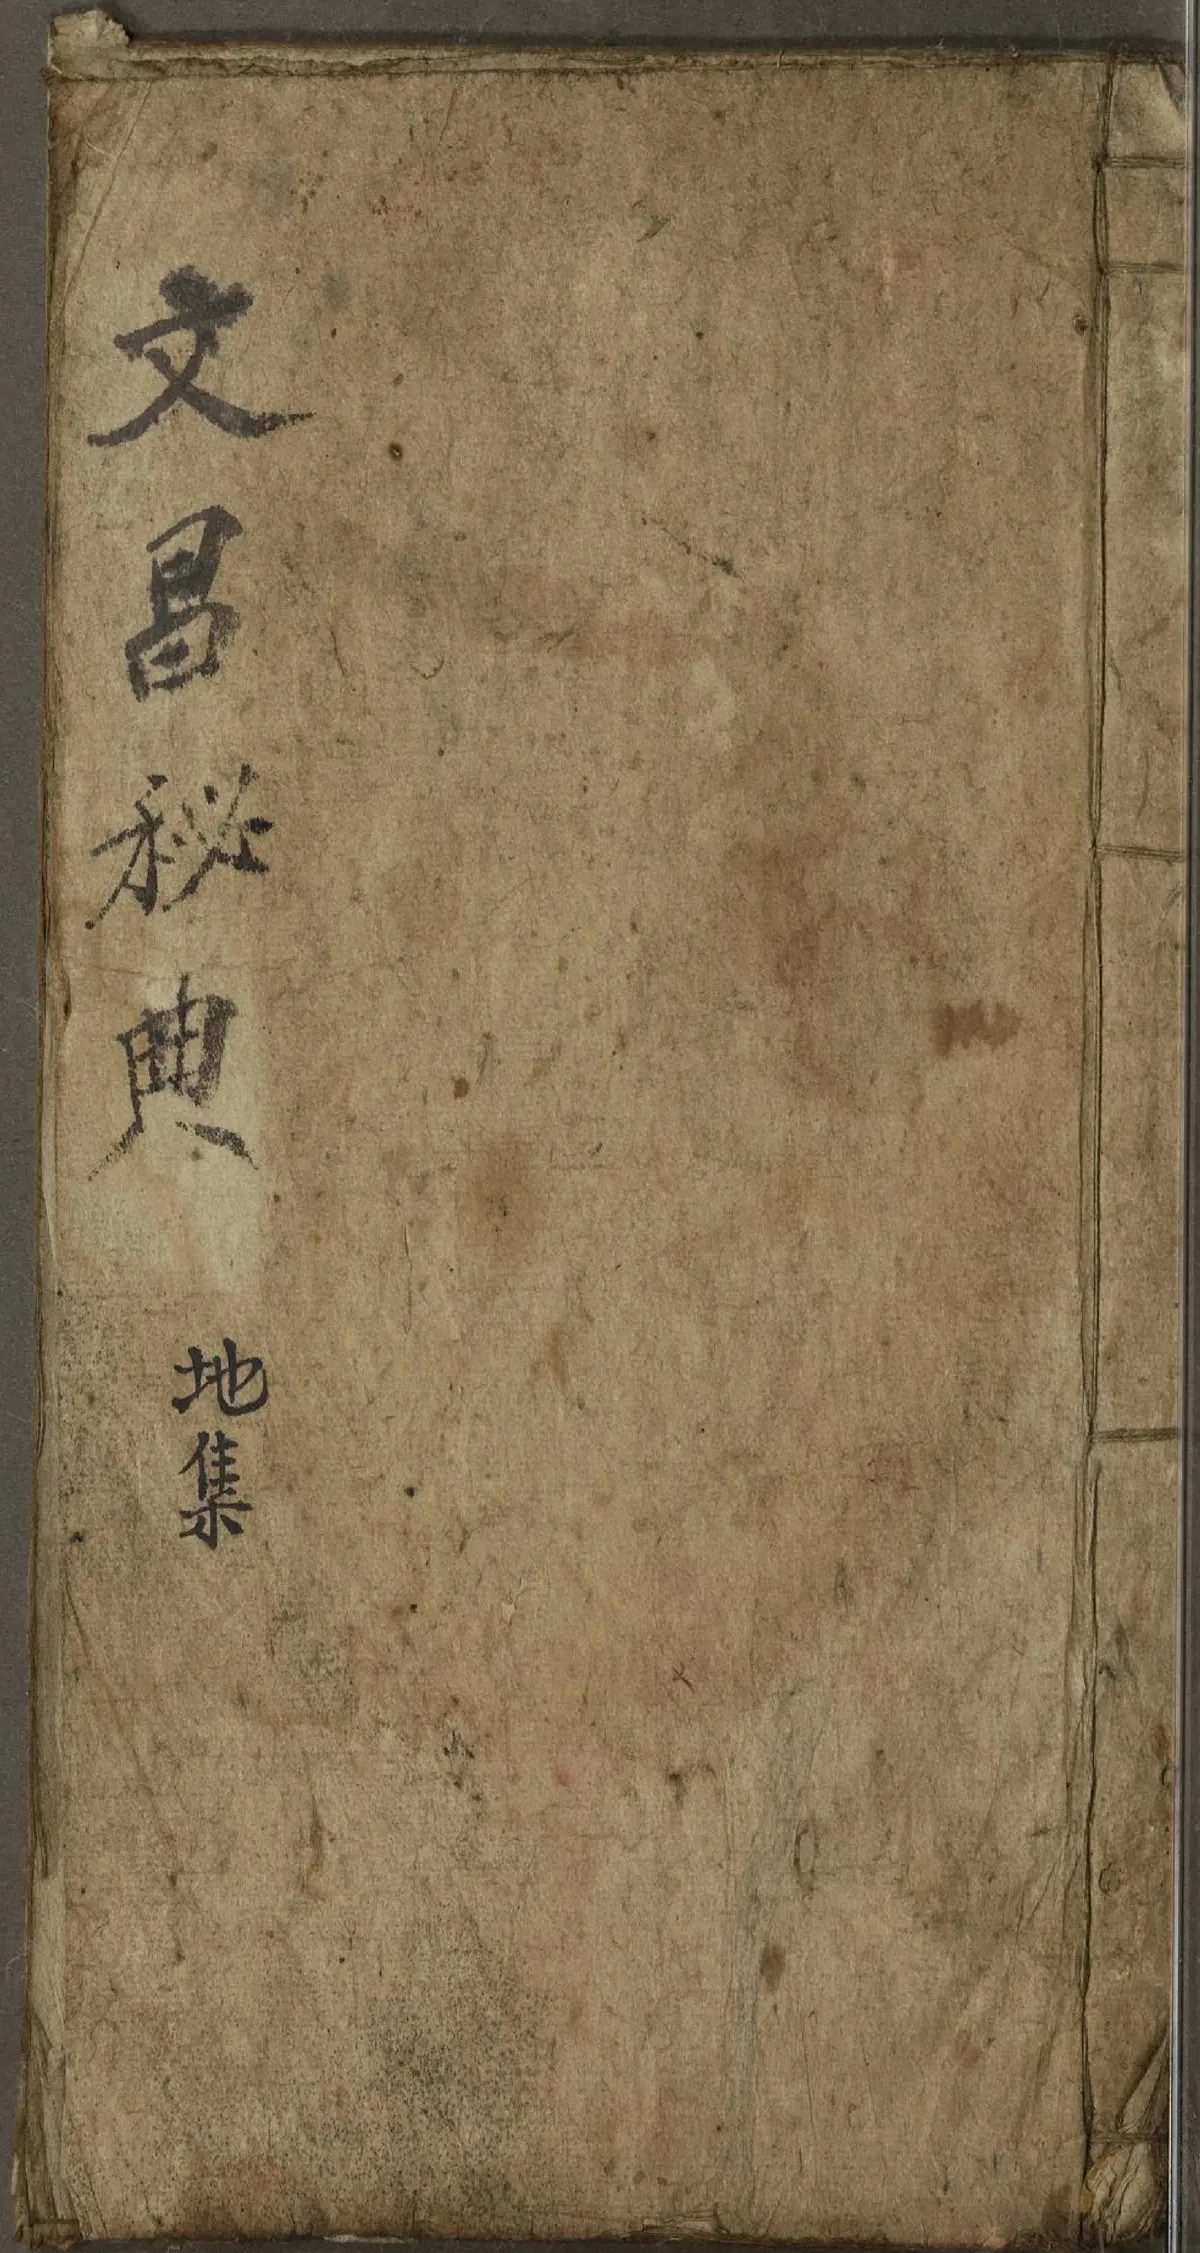 文昌秘典
地集